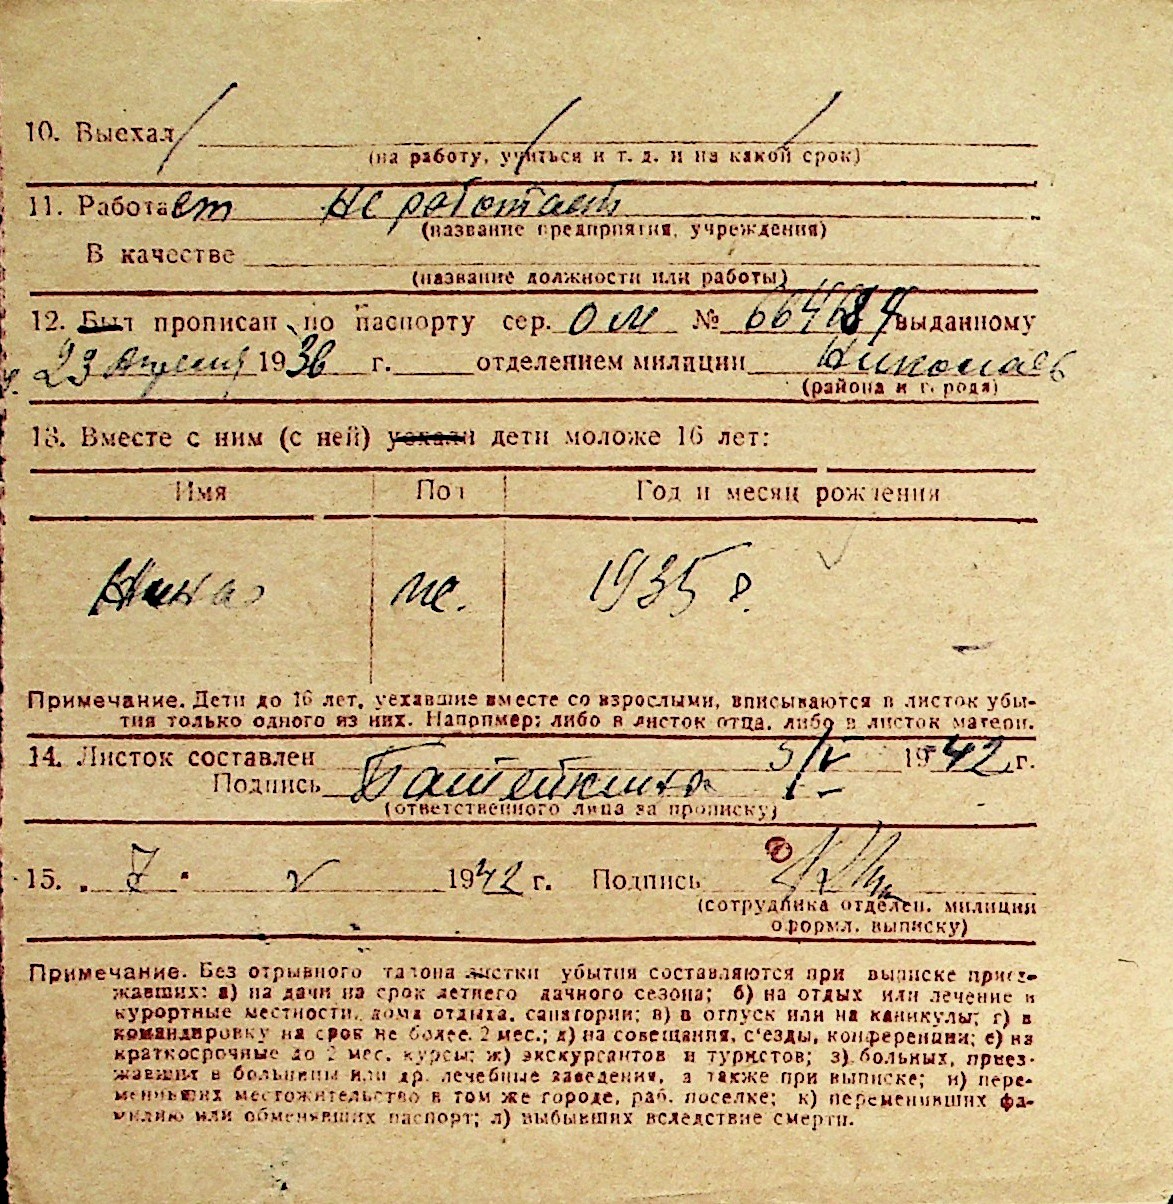 10. Выехал
(на работу, учиться и т. д. и на какой срок)
11. Работает не работает
(название предприятия, учреждения)
В качестве
(название должности или работы)
12. Был прописан по паспорту сер. ОМ № 664684 выданному
23 Апреля 1936 г. отделением милиции Николаев
(района и города)
13. Вместе с ним (с ней) уехали дети моложе 16 лет:
Имя Пол Год и месяц рождения
Нина ж. 1935 г.
Примечание. Дети до 16 лет, уехавшие вместе со взрослыми, вписываются в листок убы-
тия только одного из них. Например: либо в листок отца, либо в листок матери.
14. Листок составлен 5/V 1942 г.
Подпись
(ответственного лица за прописку)
15. „ 7 " V 1942 г. Подпись
(сотрудника отделен. милиции
оформл. выписку)
Примечание. Без отрывного талона листки убытия составляются при выписке приез-
жавших: а) на дачи на срок летнего дачного сезона; б) на отдых или лечение в
курортные местности, дома отдыха, санатории; в) в отпуск или на каникулы; г) в
командировку на срок не более 2 мес.; д) на совещания, с'езды, конференции; е) на
краткосрочные до 2 мес. курсы; ж) экскурсантов и туристов; з) больных, приез-
жавших в больницы или др. лечебные заведения, а также при выписке; и) пере-
менивших местожительство в том же городе, раб. поселке; к) переменивших фа-
милию или обменявших паспорт; л) выбывших вследствие смерти.